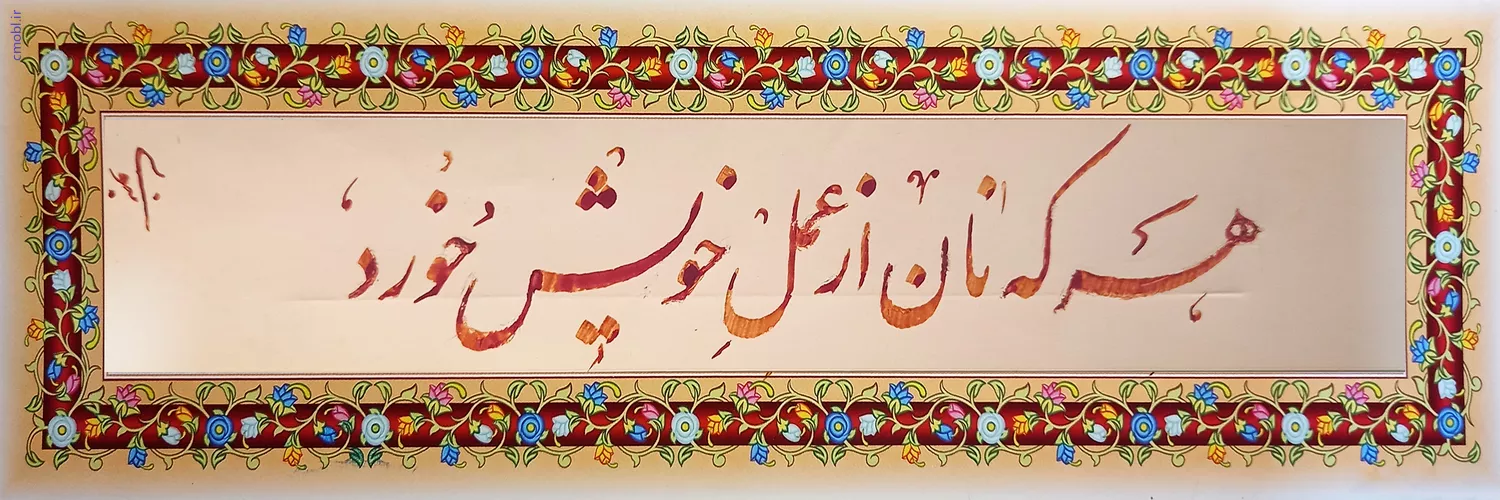 هر که نان از عمل خویش خورد
cmobl.ir